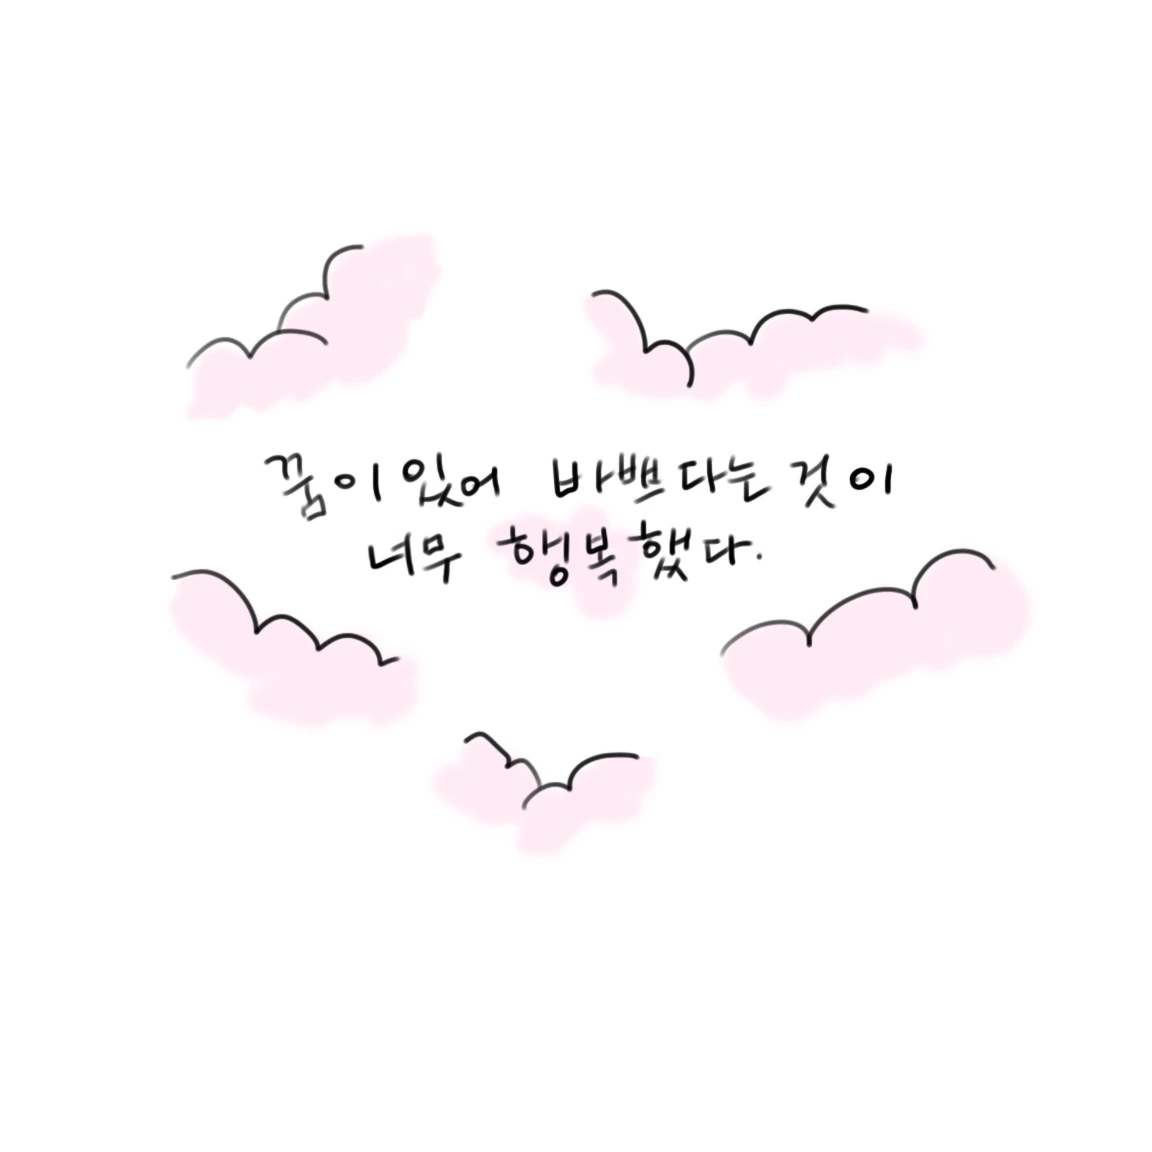 꿈이 있어 바쁘다는 것이
너무 행복했다.